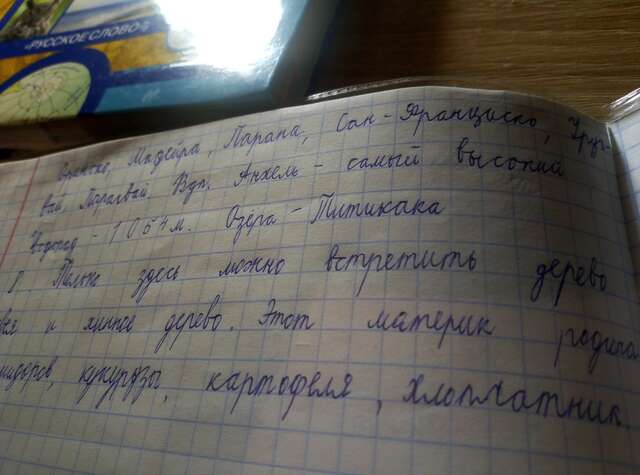 «РУССКОЕ СЛОВО»
Ориноко, Мадейра, Парана, Сан-Франциско, Уруг-
вай, Парагвай. Вдп. Анхель - самый высокий
водопад - 1054 м. Озёра - Титикака
8. Только здесь можно встретить дерево
и хинное дерево. Этот материк родина
мидоров, кукурузы, картофеля, хлопчатник